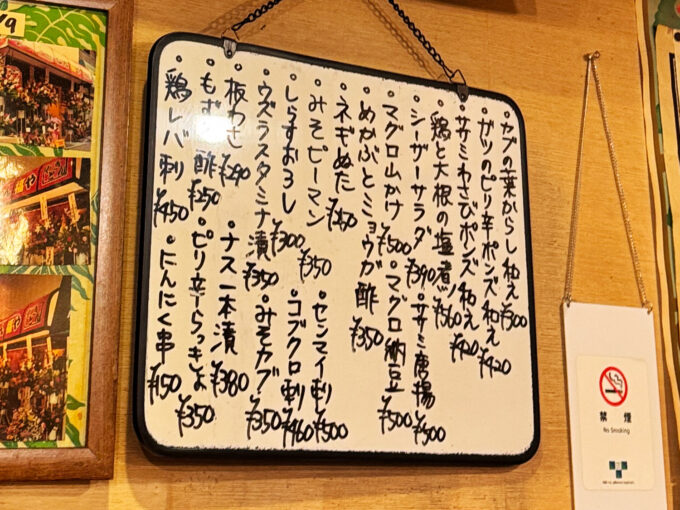 ・カブの葉からし和え¥300
・ガツのピリ辛ポンズ和え¥420
・ササミわさびポンズ和え¥420
・鶏と大根の塩煮¥360
・シーザーサラダ¥390・ササミ唐揚¥500
・マグロ山かけ¥500・マグロ納豆¥500
・めかぶとミョウガ酢¥350
・ネギぬた¥250
・みそピーマン¥350 センマイ刺し¥500
・しらすおろし¥300 コブクロ刺¥460
・ウズラスタミナ漬¥350・みそカブ¥350
・板わさ¥290・ナス一本漬¥380
・もずく酢¥250・ピリ辛らっきょ¥350
・鶏レバ刺¥450・にんにく串¥150
禁煙
No Smoking